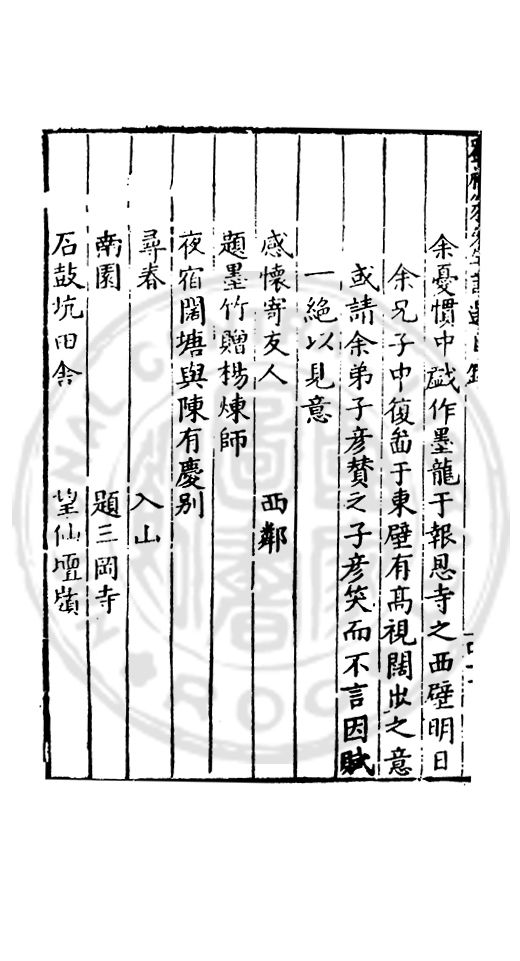 余憂慣中戯作墨龍于報恩寺之西壁明日
余兄子中復畱于東壁有髙視闊出之意
或請余弟子彦賛之子彦笑而不言因賦
一絶以見意
感懷寄友人 西鄰
題墨竹贈楊煉師
夜宿闊塘與陳有慶别
尋春 入山
南園 題三岡寺
石鼓坑田舍 望仙壇嶺